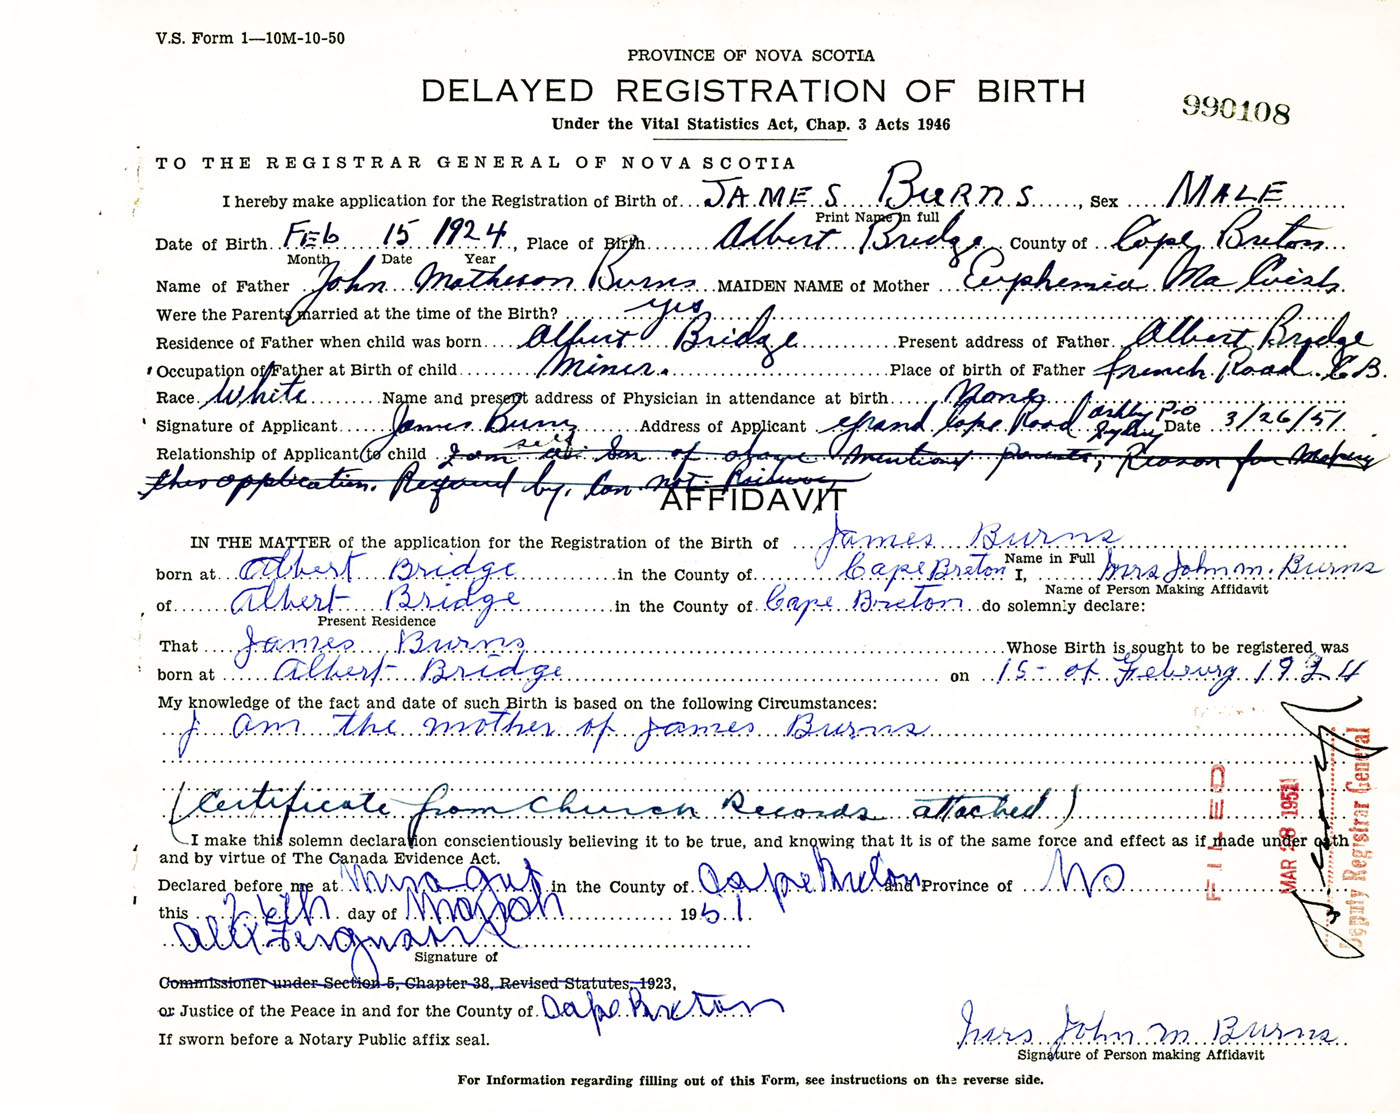 V.S. Form 1—10M-10-50
PROVINCE OF NOVA SCOTIA
DELAYED REGISTRATION OF BIRTH
990108
Under the Vital Statistics Act, Chap. 3 Acts 1946
TO THE REGISTRAR GENERAL OF NOVA SCOTIA
I hereby make application for the Registration of Birth of JAMES BURNS, Sex MALE
Print Name in full
Date of Birth FEB 15 1924, Place of Birth Albert Bridge County of Cape Breton
Month Date Year
Name of Father John Matheson Burns MAIDEN NAME of Mother Euphemia
Were the Parents married at the time of the Birth? yes
Residence of Father when child was born Albert Bridge Present address of Father Albert Bridge
Occupation of Father at Birth of child Miner. Place of birth of Father French Road. C.B.
Race White Name and present address of Physician in attendance at birth None
Signature of Applicant James Burns Address of Applicant Grand Lake Road Ashby P.O Sydney Date 3/26/51
Relationship of Applicant to child self I am a Son of above mentioned parents, Reason for Making
this application. Required by Can. Nat. Railway
AFFIDAVIT
IN THE MATTER of the application for the Registration of the Birth of James Burns
Name in Full
born at Albert Bridge in the County of Cape Breton I, Mrs John M. Burns
Name of Person Making Affidavit
of Albert Bridge in the County of Cape Breton do solemnly declare:
Present Residence
That James Burns Whose Birth is sought to be registered was
born at Albert Bridge on 15 - of Feburg 1924
My knowledge of the fact and date of such Birth is based on the following Circumstances:
I am the mother of James Burns
(Certificate from Church Records attached)
I make this solemn declaration conscientiously believing it to be true, and knowing that it is of the same force and effect as if made under oath
and by virtue of The Canada Evidence Act.
Declared before me at Mira Gut in the County of Cape Breton and Province of NS
this 26th day of March 1951
Alex Ferguson
Signature of
Commissioner under Section 5, Chapter 38, Revised Statutes, 1923,
or Justice of the Peace in and for the County of Cape Breton
If sworn before a Notary Public affix seal.
Mrs John M Burns
Signature of Person making Affidavit
For Information regarding filling out of this Form, see instructions on the reverse side.
FILED
MAR 28 1951
Deputy Registrar General